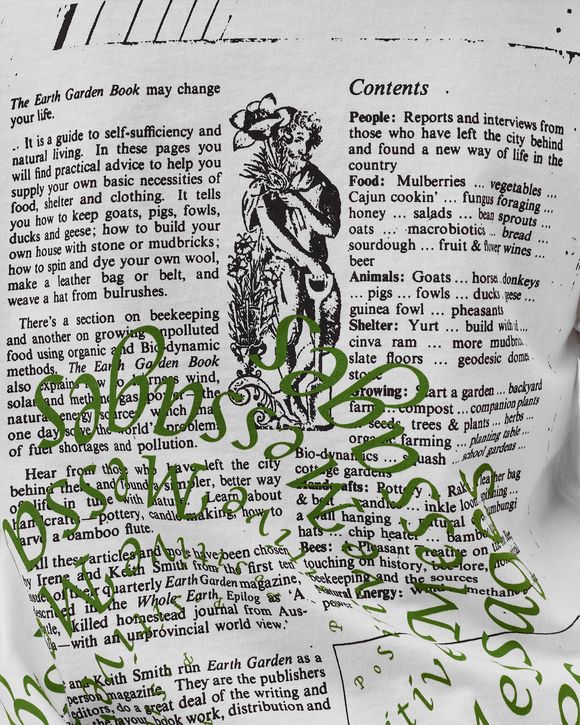 The Earth Garden Book may change
your life.
It is a guide to self-sufficiency and
natural living. In these pages you
will find practical advice to help you
supply your own basic necessities of
food, shelter and clothing. It tells
you how to keep goats, pigs, fowls,
ducks and geese; how to build your
own house with stone or mudbricks;
how to spin and dye your own wool,
make a leather bag or belt, and
weave a hat from bulrushes.
There's a section on beekeeping
and another on growing unpolluted
food using organic and Bio-dynamic
methods. The Earth Garden Book
also explain how to wind,
solar and methane gas power the
natural energy sources which may
one day solve the world's problem
of fuel shortages and pollution.
Hear from those who have left the city
behind them and found simpler, better way
of life in tune with nature. Learn about
handcrafts—pottery, candle making, how to
carve bamboo flute.
All these articles and have been chosen
by Irene and Keith Smith from the first ten
issues of their quarterly Earth Garden magazine,
described in the Whole Earth Epilog as 'A
killed homestead journal from Aus-
—with an unprovincial world view.'
and Keith Smith run Earth Garden as a
person magazine. They are the publishers
editors, do a great deal of the writing and
the layout, book work, distribution and
Contents
People: Reports and interviews from
those who have left the city behind
and found a new way of life in the
country
Food: Mulberries ... vegetables ...
Cajun cookin' ... fungus foraging ...
honey ... salads ... bean sprouts ...
oats ... macrobiotics ... bread ...
sourdough ... fruit & flower wines ...
beer
Animals: Goats ... horse donkeys
... pigs ... fowls ... ducks geese ...
guinea fowl ... pheasants
Shelter: Yurt ... build with
cinva ram ... more mudbric
slate floors ... geodesic domes
Growing: Start a garden ... backyard
farm compost ... companion plants
seeds, trees & plants ... herbs ...
organic farming ... planting table ...
Bio-dynamics squash ... school gardens ...
cottage gardens
Handcrafts: Pottery ... leather bag
& belt candle ... inkle loom spinning ...
a wall hanging natural
hats chip heater bamboo
Bees: Pleasant creature on
touching on history, folklore,
beekeeping and the sources
Natural Energy: Wind methane
power
Positive Messages